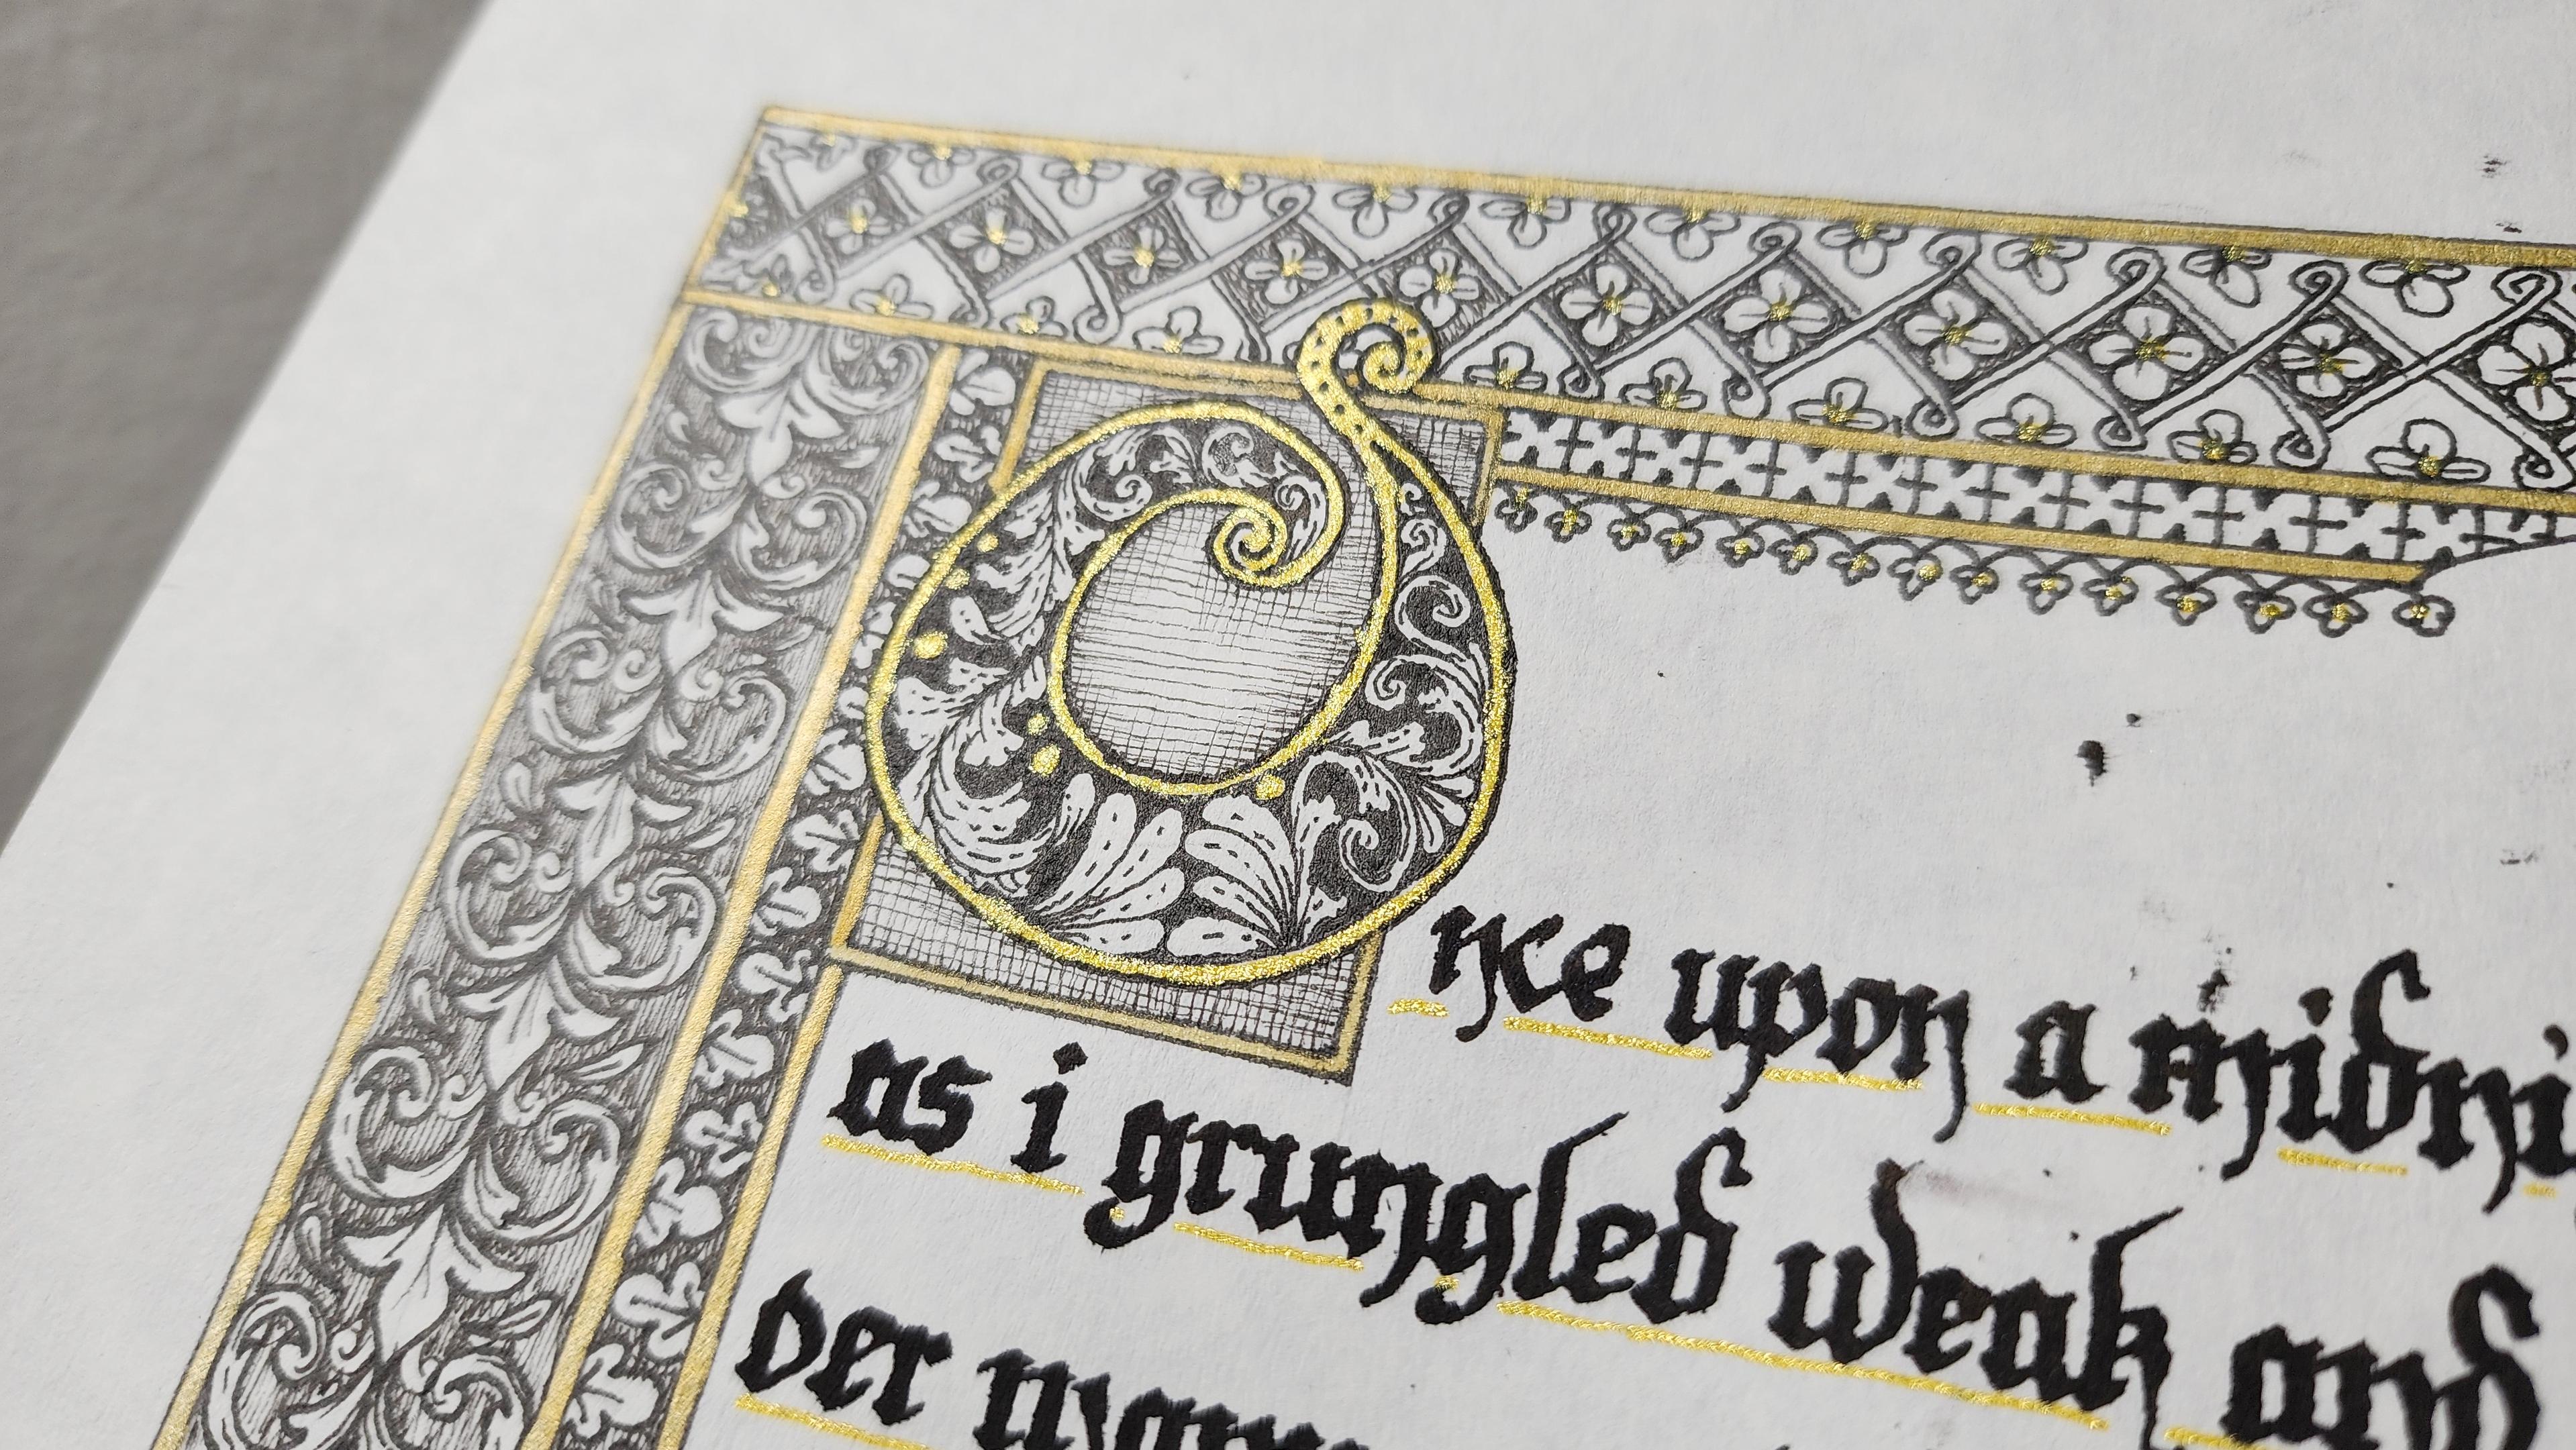 Once upon a midni
as i grungled weak and
der many